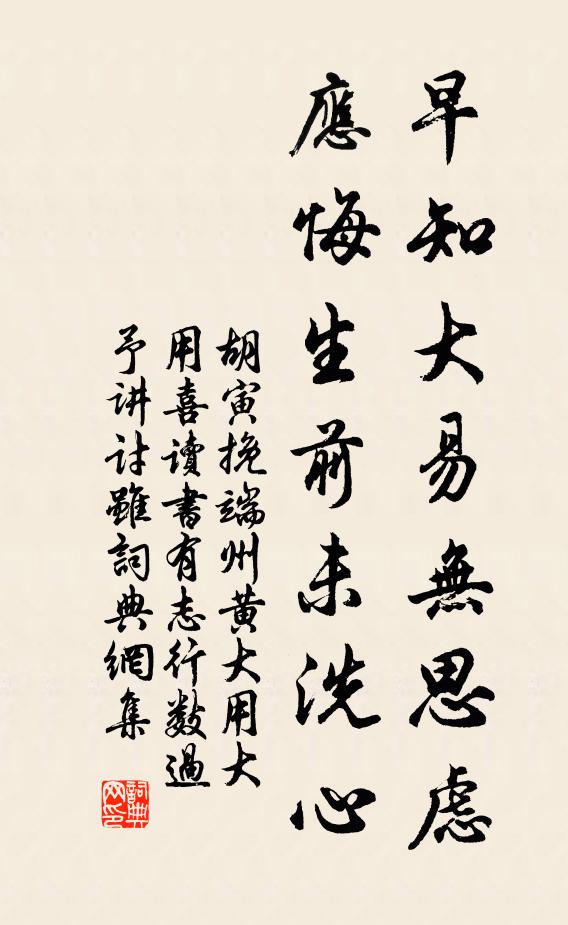 早知大易無思慮
應悔生前未洗心
胡寅挽端州黄大用大
用喜讀書有志行數過
予讲討雖詞典網集
詞典网印